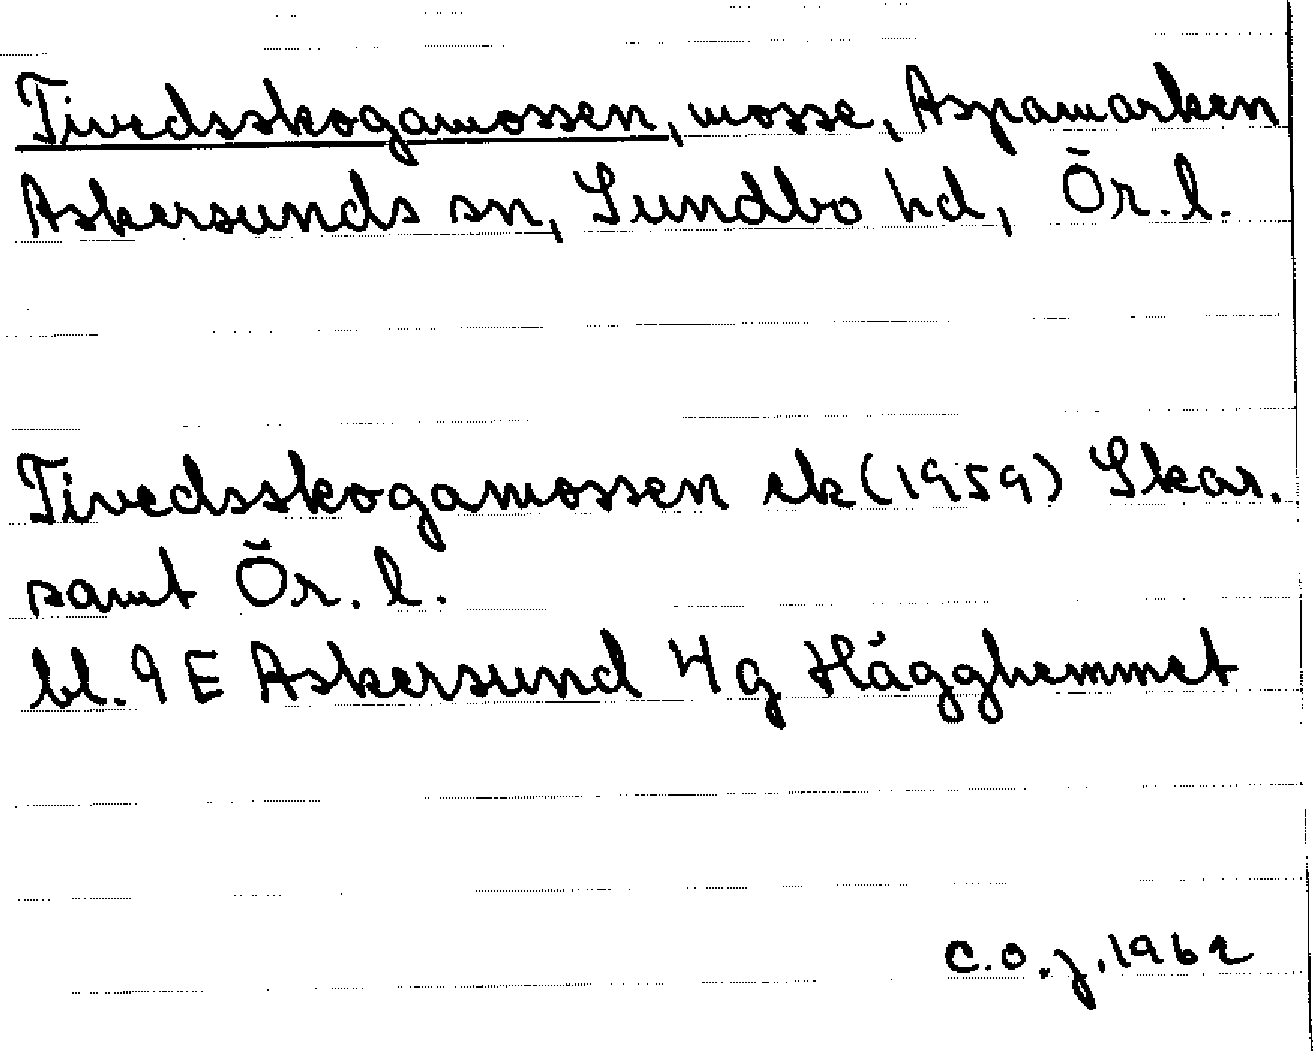 Tivedsskogamossen, mosse, Aspamarken
Askersunds sn, Sundbo hd, Ör. l.
Tivedsskogamossen ek (1959) Skar.
samt Ör. l.
bl. 9 E Askersund 4 g Hägghemmet
C.O.J. 1962